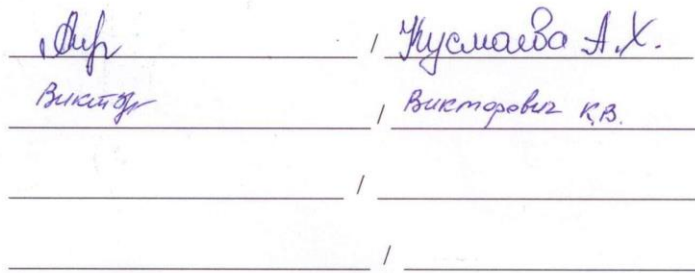 / Кусмаева А.Х.
Виктор / Викторович К.В.
/
/